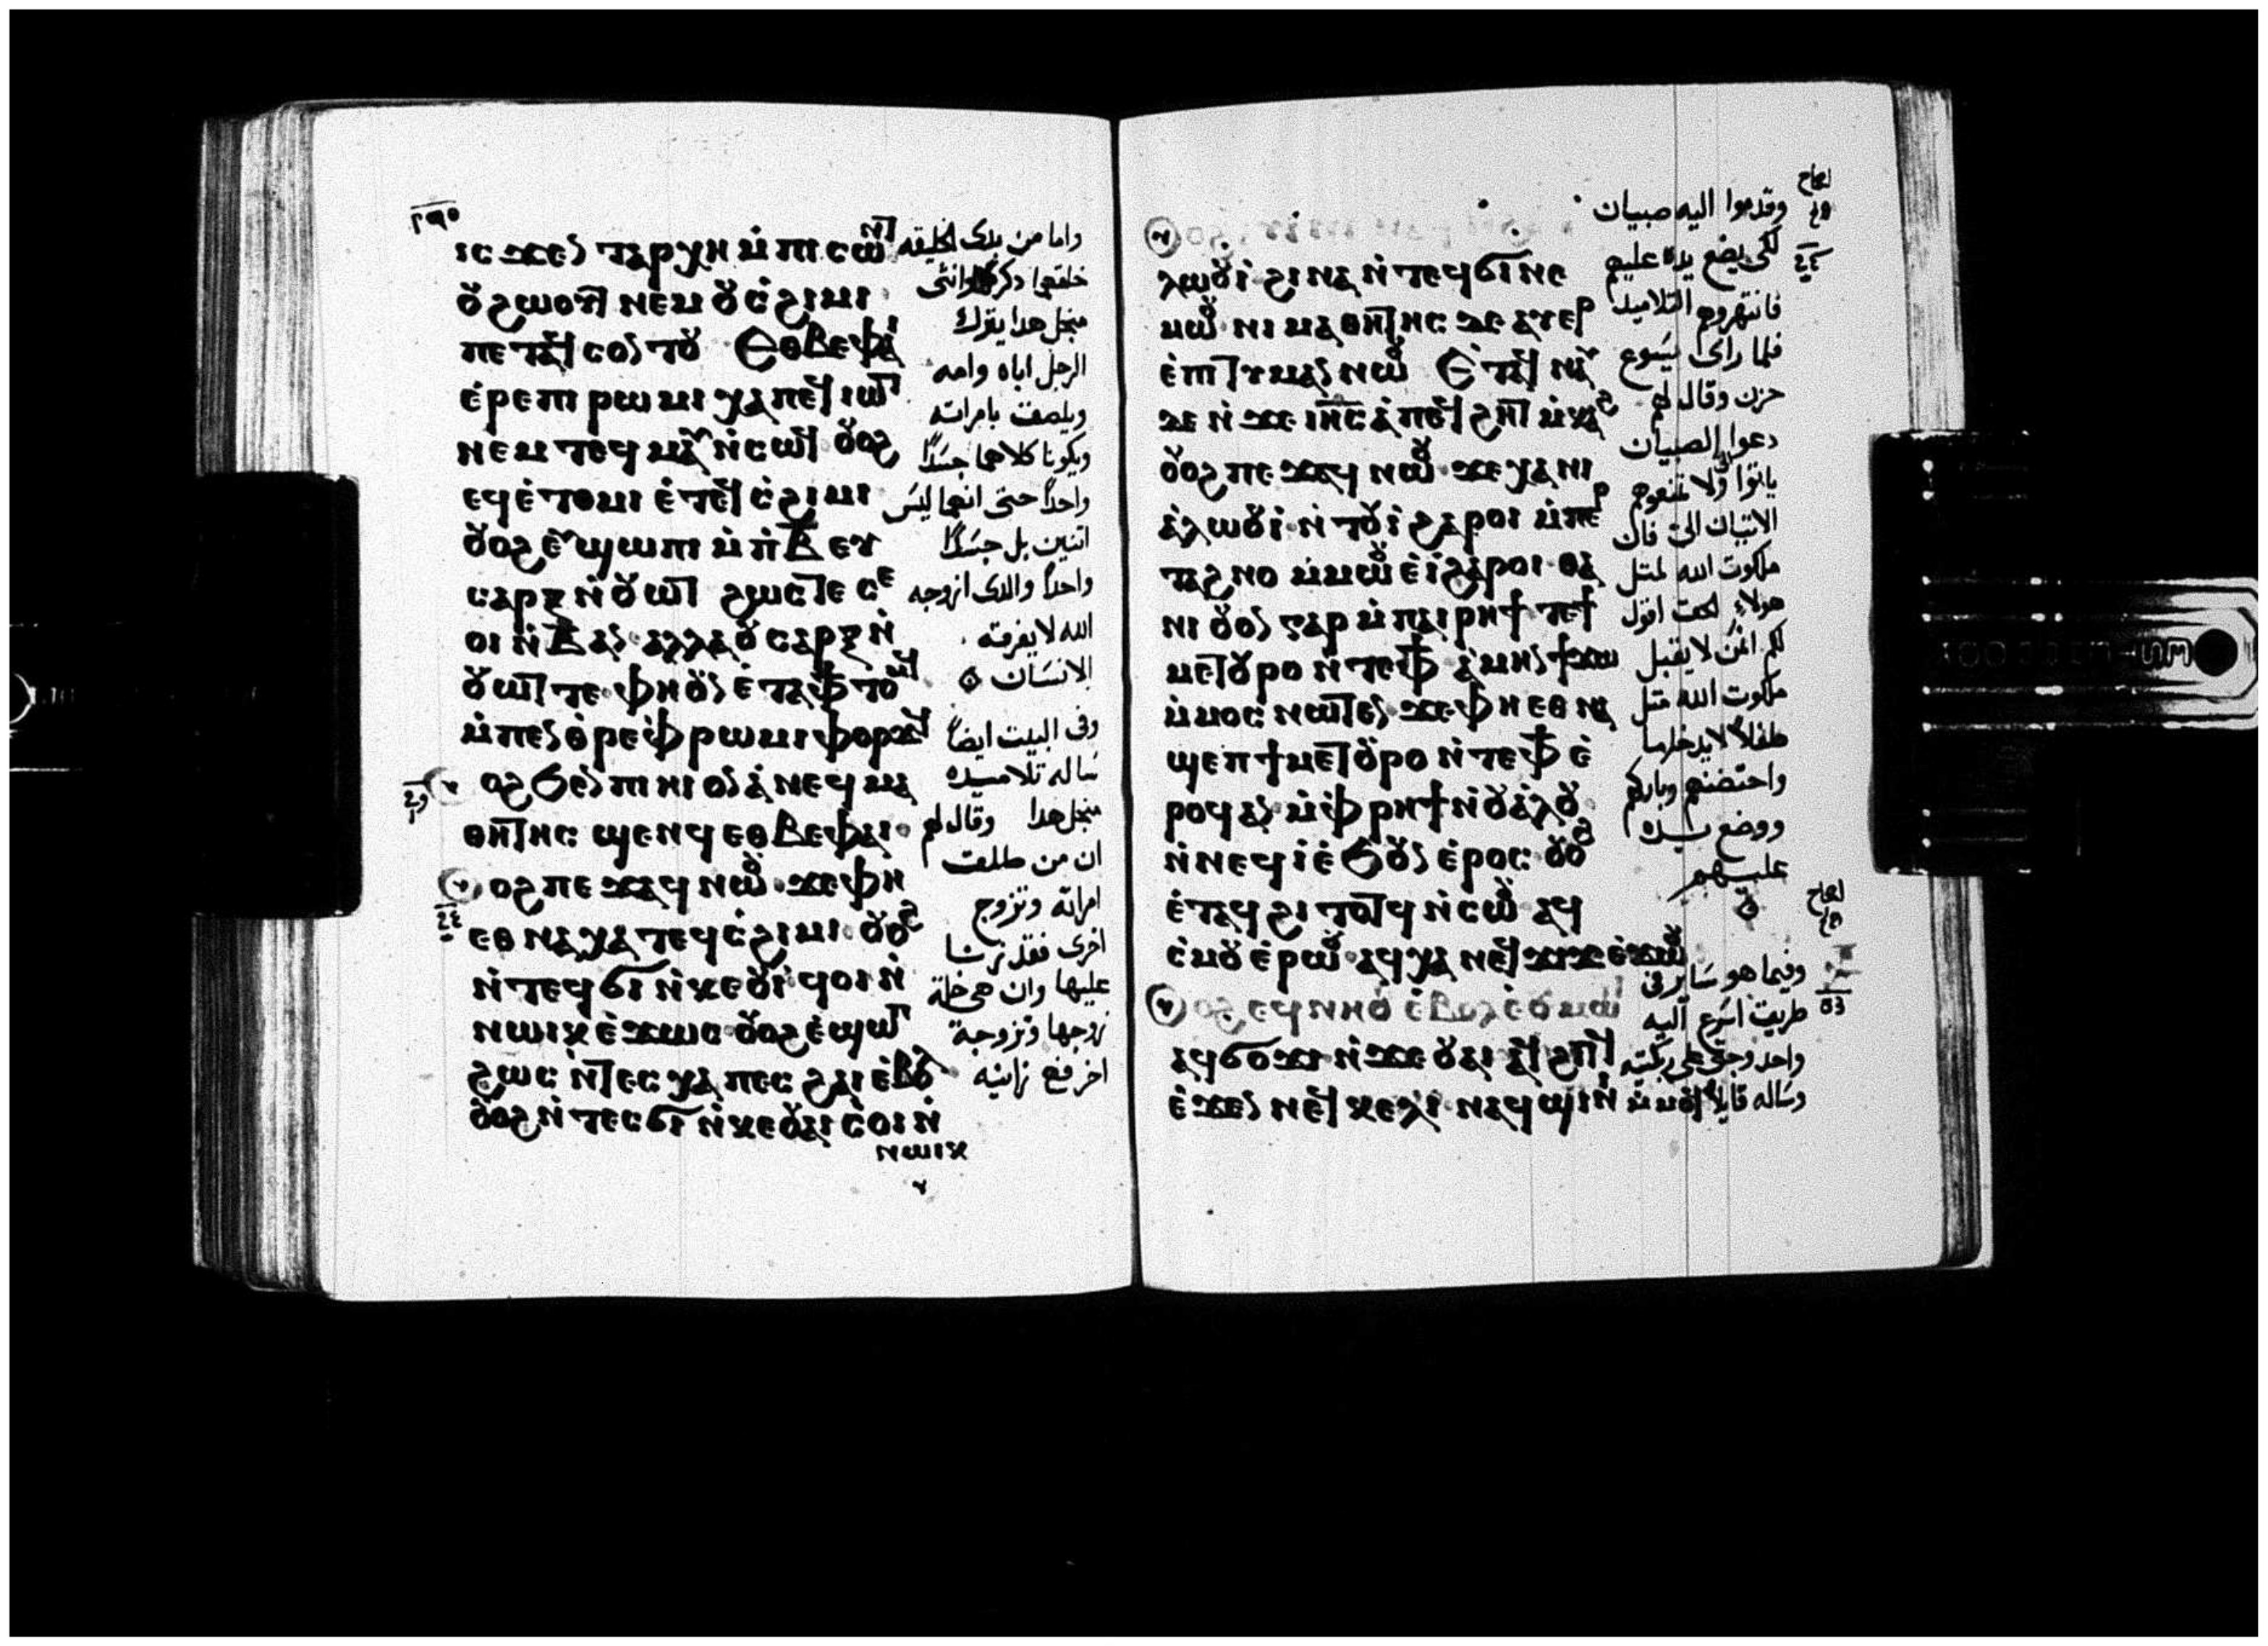 ٢٩٥
ⲓⲥϫⲉⲛ ⲧⲁⲣⲭⲏ ⲙ̇ⲡⲓⲥⲱⲛⲧ
ⲟⲩϩⲱⲟⲩⲧ ⲛⲉⲙ ⲟⲩⲥ̇ϩⲓⲙⲓ
ⲡⲉⲧⲁϥⲥⲟⲛⲧⲟⲩ Ⲉⲑⲃⲉⲫⲁⲓ
ⲉ̇ⲣⲉⲡⲓⲣⲱⲙⲓ ⲭⲁⲡⲉϥⲓⲱⲧ
ⲛⲉⲙ ⲧⲉϥⲙⲁⲩ ⲛ̇ⲥⲱϥ ⲟⲩⲟϩ
ⲉϥⲉ̇ⲧⲟⲙⲓ ⲉ̇ⲧⲉϥⲥ̇ϩⲓⲙⲓ
ⲟⲩⲟϩ ⲉⲩϣⲱⲡⲓ ⲙ̇ⲡ̇Ⲃ ⲉⲩ
ⲥⲁⲣⲝ ⲛ̇ⲟⲩⲱⲧ ϩⲱⲥⲧⲉ ⲥⲉ
ⲟⲓ ⲛ̇Ⲃ ⲁⲛ ⲁⲗⲗⲁ ⲟⲩⲥⲁⲣⲝ ⲛ̇
ⲟⲩⲱⲧ ⲧⲉ ⲫⲏⲟⲩⲛ ⲉ̇ⲧⲁⲫϯ ⲧⲟⲙϥ
ⲙ̇ⲡⲉⲛⲑ̇ⲣⲉⲫ̇ⲣⲱⲙⲓ ⲫⲟⲣϫϥ
ⲟⲩⲟϩ ϧⲉⲛ ⲡⲓⲏⲓ ⲟⲛ ⲁ̇ⲛⲉϥⲙⲁ
ⲑⲏⲧⲏⲥ ϣⲉⲛϥ ⲉⲑⲃⲉⲫⲁⲓ
ⲟⲩⲟϩ ⲡⲉϫⲁϥ ⲛⲱⲟⲩ ϫⲉ ⲫⲏ
ⲉⲑⲛⲁⲭⲁ ⲧⲉϥⲥ̇ϩⲓⲙⲓ ⲟⲩⲟϩ
ⲛ̇ⲧⲉϥϭⲓ ⲛ̇ⲕⲉⲟⲩⲓ̇ ϥⲟⲓ ⲛ̇
ⲛⲱⲓⲕ ⲉ̇ϫⲱⲥ ⲟⲩⲟϩ ⲉ̇ϣⲱⲡ
ϩⲱⲥ ⲛ̇ⲧⲉⲥⲭⲁ ⲡⲉⲥϩⲁⲓ ⲉ̇ⲃⲟⲗ
ⲟⲩⲟϩ ⲛ̇ⲧⲉⲥϭⲓ ⲛ̇ⲕⲉⲟⲩⲁⲓ ⲥ̇ⲟⲓ ⲛ̇
ⲛⲱⲓⲕ
واما من بدى الخليقه
خلقهما دكرا وانثى
منجل هدا يترك
الرجل اباه وامه
ويلصق بامراته
ويكونا كلاهما جسدًا
واحدًا حتى انهما ليس
اتنين بل جسدًا
واحدًا والدى ازوجه
الله لا يفرقه
الانسان
وفى البيت ايضًا
ساله تلاميده
منجل هدا وقال لهم
ان من طلق
امراته وتزوج
اخرى فقد زنا
عليها وان هى خلة
زوجها وتزوجة
اخر فهى زانيه
ⲁⲗⲱⲟⲩⲓ̇ ϩⲓⲛⲁ ⲛ̇ⲧⲉϥϭⲓ ⲛⲉ
ⲙⲱⲟⲩ ⲛⲓⲙⲁⲑⲏⲧⲏⲥ ⲇⲉ ⲁⲩⲉⲣ
ⲉ̇ⲡⲓⲧⲓⲙⲁⲛ ⲛⲱⲟⲩ Ⲉ̇ⲧⲁϥⲛⲁⲩ
ⲇⲉ ⲛ̇ϫⲉ ⲓⲏⲥ ⲁ̇ⲡⲉϥϩⲏⲧ ⲙ̇ⲕⲁϩ
ⲟⲩⲟϩ ⲡⲉϫⲁϥ ⲛⲱⲟⲩ ϫⲉ ⲭⲁ ⲛⲓ
ⲁ̇ⲗⲱⲟⲩⲓ̇ ⲛ̇ⲧⲟⲩⲓ̇ ϩⲁⲣⲟⲓ ⲙ̇ⲡⲉⲣ
ⲧⲁϩⲛⲟ ⲙ̇ⲙⲱⲟⲩ ⲉ̇ⲓ̇ ϩⲁⲣⲟⲓ ⲑⲁ
ⲛⲓ ⲟⲩⲟⲛ ⲅⲁⲣ ⲙ̇ⲡⲁⲓⲣⲏϯ ⲧⲉ ϯ
ⲙⲉⲧⲟⲩⲣⲟ ⲛ̇ⲧⲉⲫϯ ⲁ̇ⲙⲏⲛ ϯϫⲱ
ⲙ̇ⲙⲟⲥ ⲛⲱⲧⲉⲛ ϫⲉ ⲫⲏ ⲉⲑⲛⲁ
ϣⲉⲡ ϯⲙⲉⲧⲟⲩⲣⲟ ⲛ̇ⲧⲉⲫϯ ⲉ̇
ⲣⲟϥ ⲁⲛ ⲙ̇ⲫ̇ⲣⲏϯ ⲛ̇ⲟⲩⲁ̇ⲗⲟⲩ
ⲛ̇ⲛⲉϥⲓ̇ ⲉ̇ϧⲟⲩⲛ ⲉ̇ⲣⲟⲥ ⲟⲩⲟϩ
ⲉ̇ⲧⲁϥϩⲓⲧⲟⲧϥ ⲛ̇ⲥⲱⲟⲩ ⲁϥ
ⲥ̇ⲙⲟⲩ ⲉ̇ⲣⲱⲟⲩ ⲁϥⲭⲁ ⲛⲉϥϫⲓϫ ⲉ̇ϫⲱⲟⲩ
ⲟⲩⲟϩ ⲉϥⲛⲏⲟⲩ ⲉ̇ⲃⲟⲗ ⲉ̇ⲟⲩⲙⲱⲓⲧ
ⲁϥϭⲟϫⲓ ⲛ̇ϫⲉ ⲟⲩⲁⲓ ⲁϥϩⲓⲧϥ
ⲉ̇ϫⲉⲛ ⲛⲉϥⲕⲉⲗⲓ ⲛⲁϥϣⲓⲛⲓ ⲙ̇ⲙⲟϥ
وقدموا اليه صبيان
لكى يضع يده عليهم
فانتهروهم التلاميد
فلما راى يسوع
حزن وقال لهم
دعوا الصبيان
ياتوا ولا تمنعوهم
الاتيان الىّ فان
ملكوت الله لمتل
هولاء الحق اقول
لكم ان من لا يقبل
ملكوت الله متل
طفلًا لا يدخلها
واحتضنهم وباركهم
ووضع يده
عليهم
وفيما هو ساير فى
طريق اسرع اليه
واحد وجتى على ركبتيه
وساله قايلا